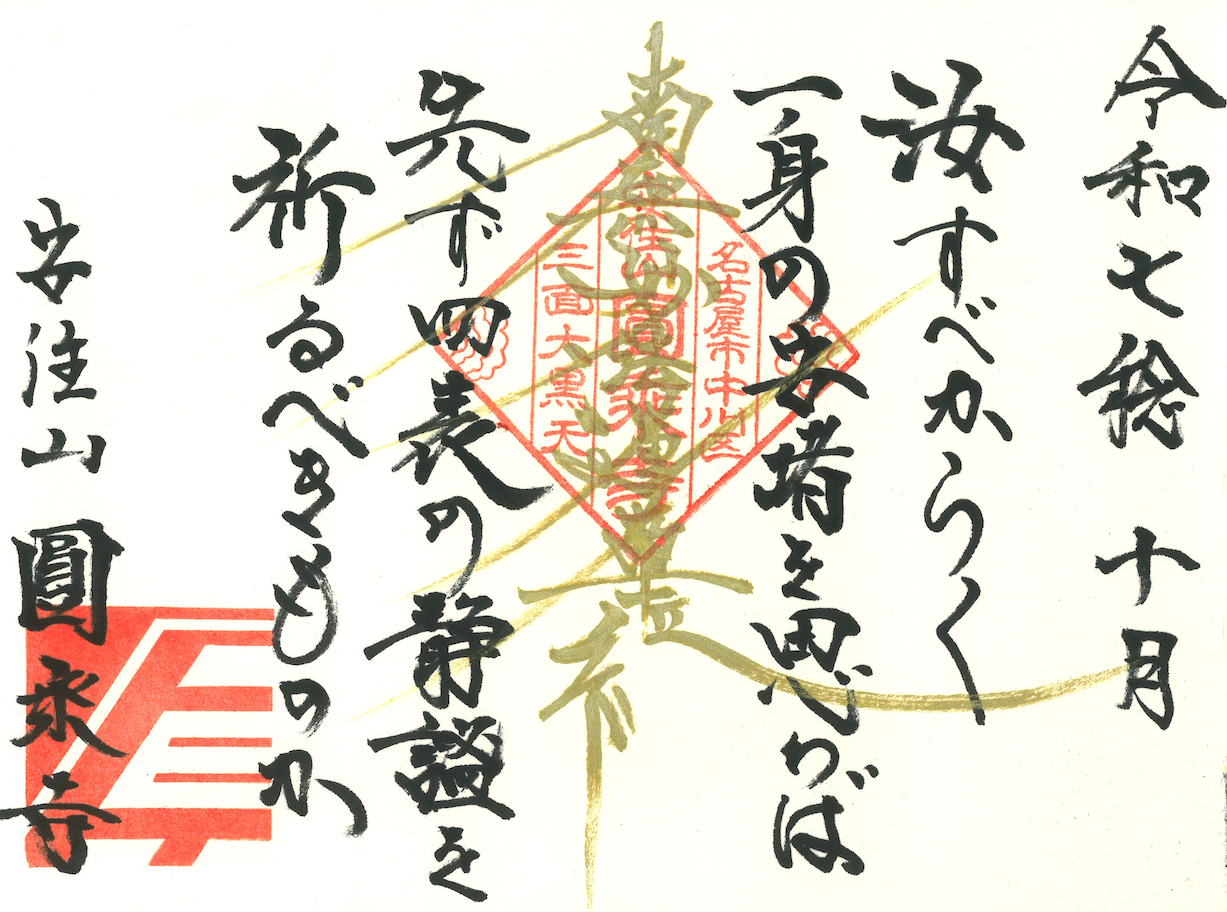 令和七稔 十月
汝すべからく
一身の安堵を思わば
名古屋市中川区
南無妙法蓮華経
安住山圓乗寺
三面大黒天
先ず四表の静謐を
祈るべきものか
安住山 圓乗寺